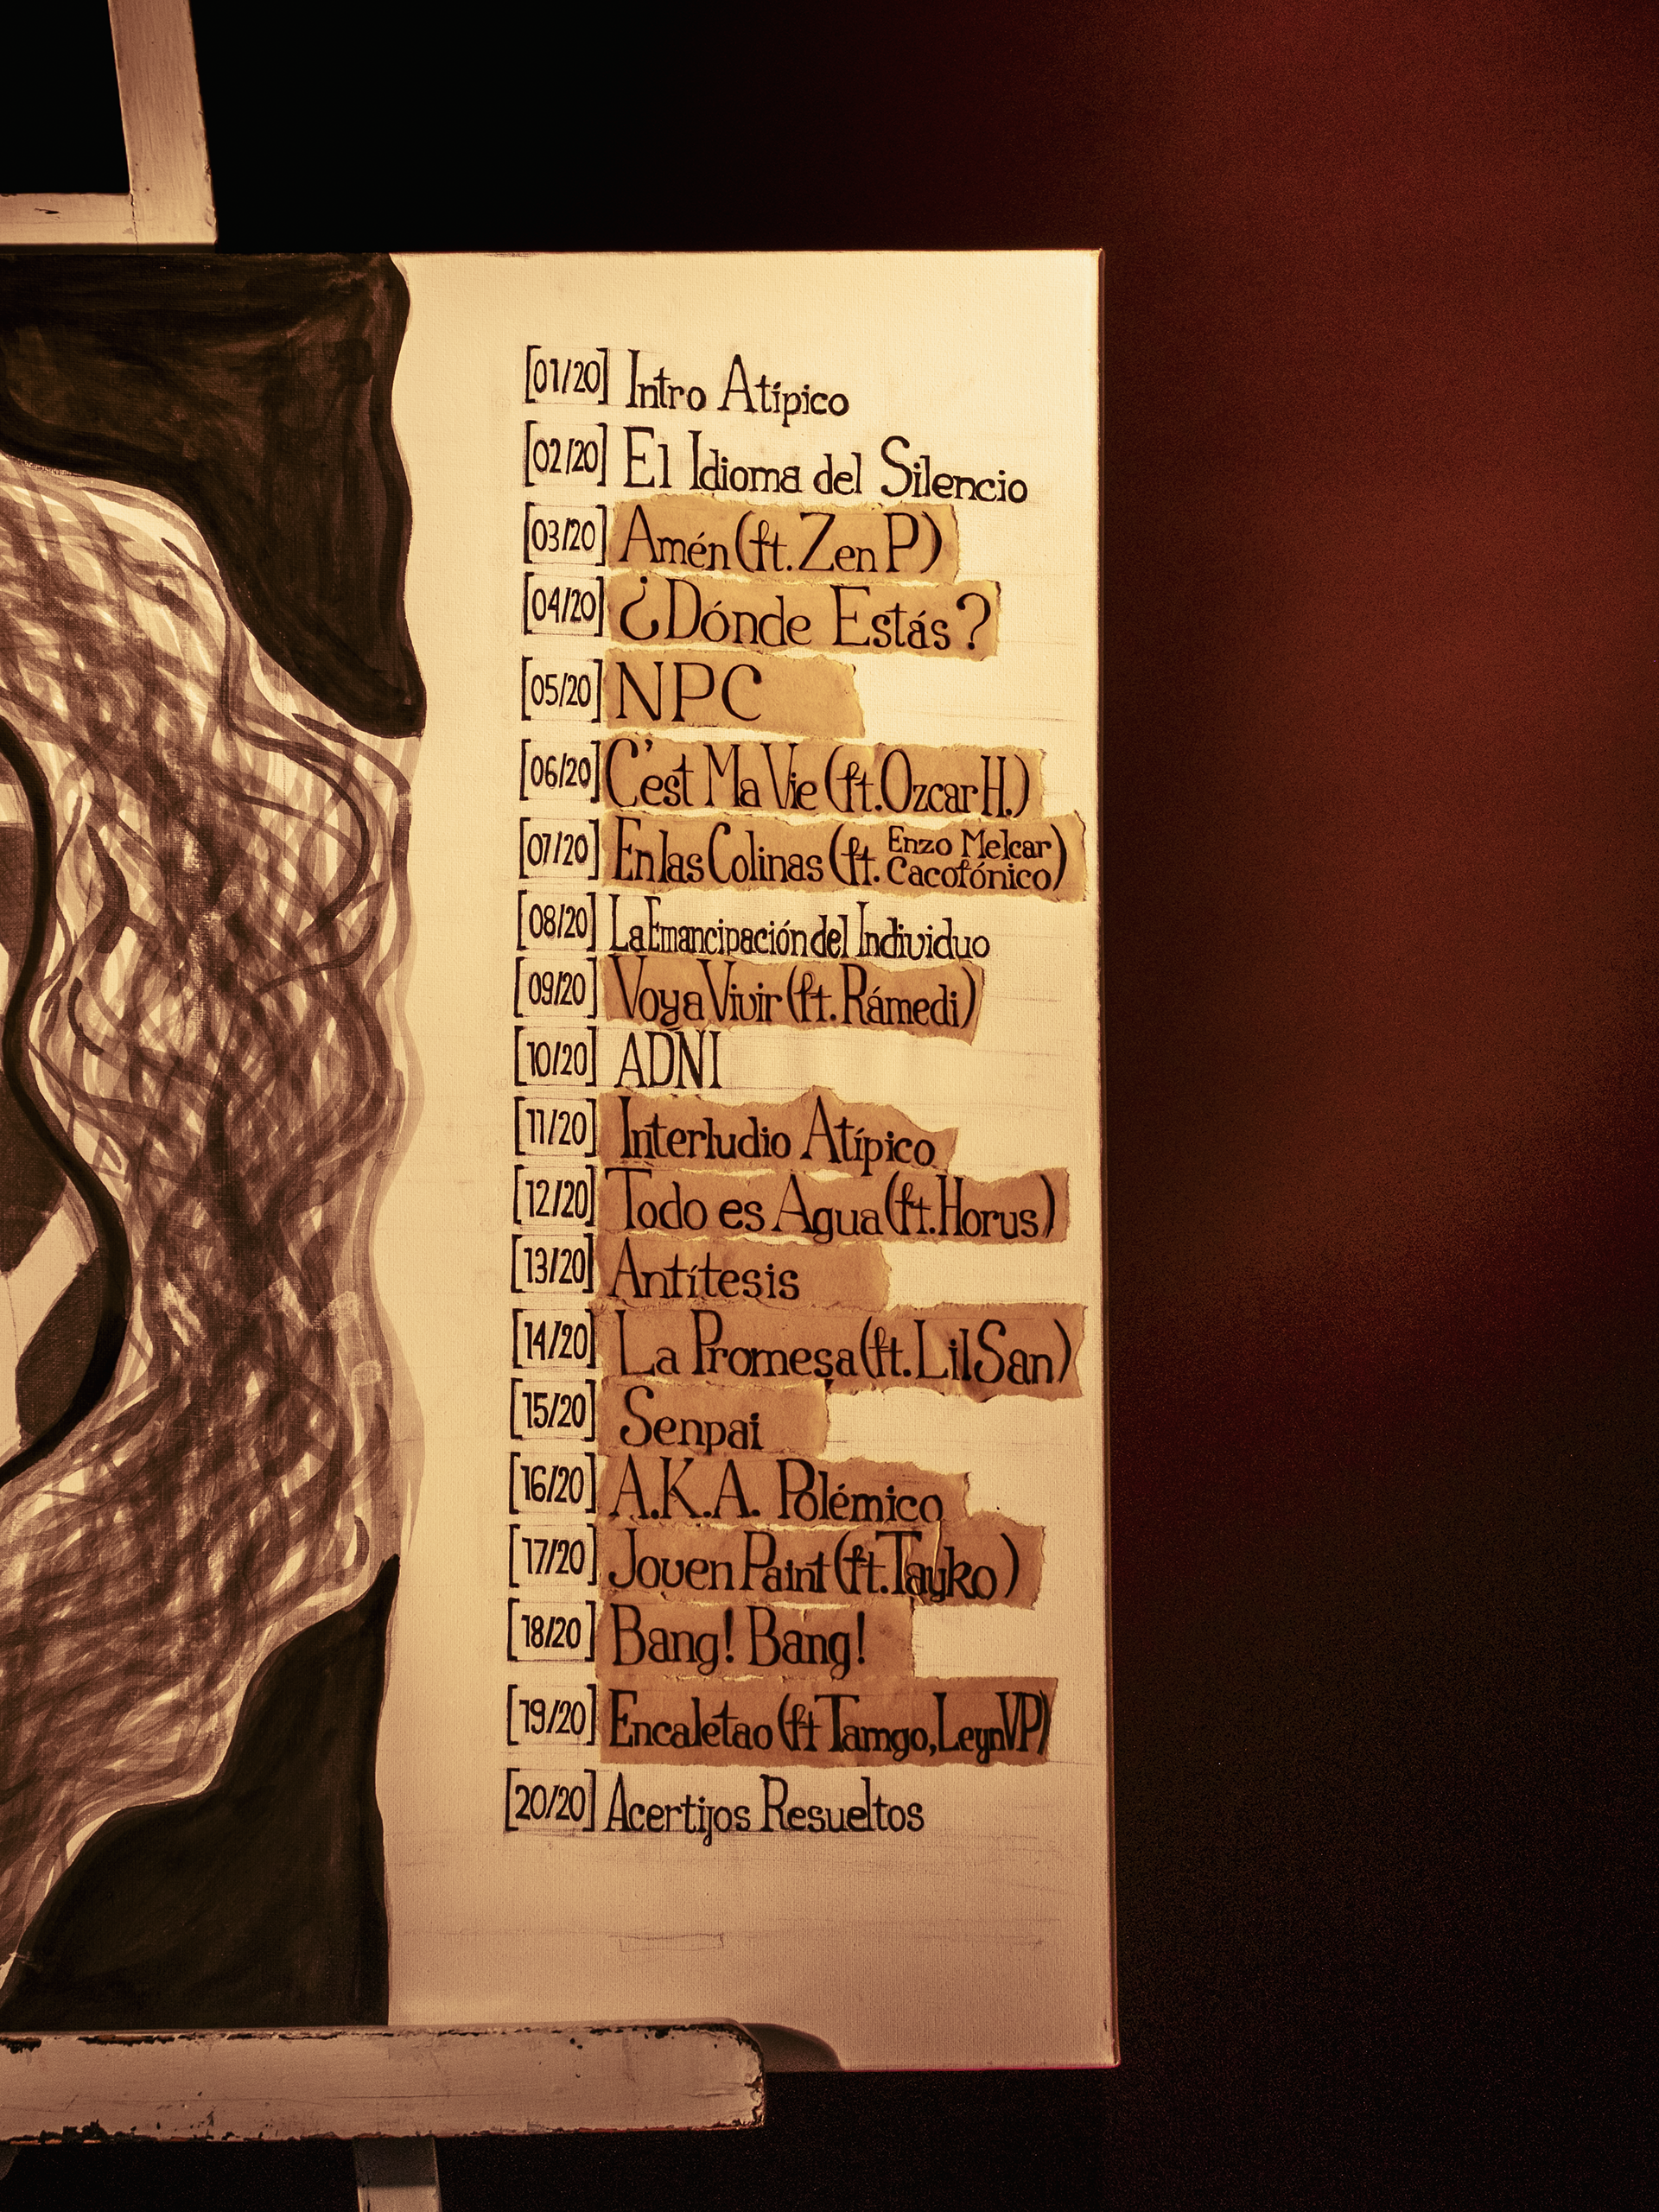 [01/20] Intro Atípico
[02/20] El Idioma del Silencio
[03/20] Amén (ft. Zen P)
[04/20] ¿Dónde Estás?
[05/20] NPC
[06/20] C'est Ma Vie (ft. Ozcar H.)
[07/20] En las Colinas (ft. Enzo Melcar Cacofónico)
[08/20] La Emancipación del Individuo
[09/20] Voy a Vivir (ft. Rámedi)
[10/20] ADNI
[11/20] Interludio Atípico
[12/20] Todo es Agua (ft. Horus)
[13/20] Antítesis
[14/20] La Promesa (ft. Lil San)
[15/20] Senpai
[16/20] A.K.A. Polémico
[17/20] Joven Paint (ft. Tayko)
[18/20] Bang! Bang!
[19/20] Encaletao (ft Tamgo, Leyn VP)
[20/20] Acertijos Resueltos